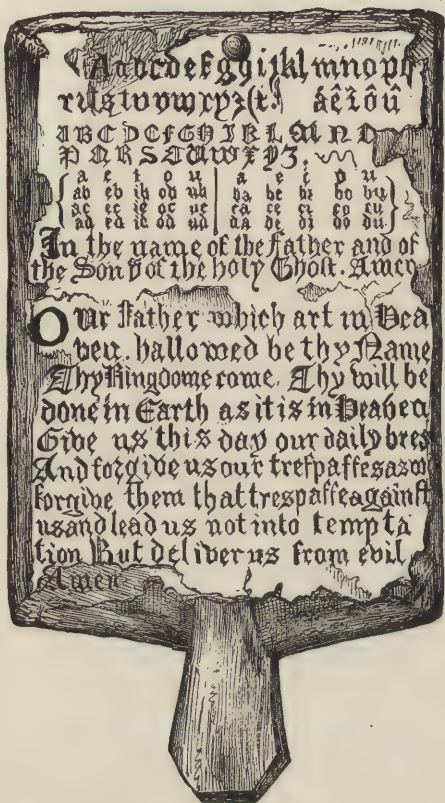 Aabcdefggijkl, mnopq
rſstuvwxyz&t. áêîôû
ABCDEFGHIJKLMNO
PQRSTUVWXYZ.
a e i o u a e i o u
ab eb ib ob ub ba be bi bo bu
ac ec ic oc uc ca ce ci co cu
ad ed id od ud da de di do du
In the name of the Father and of
the Son & of the holy Ghost. Amen
Our Father which art in Hea
ven. hallowed be thy Name
Thy Kingdome come. Thy will be
done in Earth as it is in Heaven
Give us this day our daily bred
And forgive us our treſpaſſes as we
forgive them that trespaſſe againſt
us and lead us not into tempta
tion But deliver us from evil
Amen